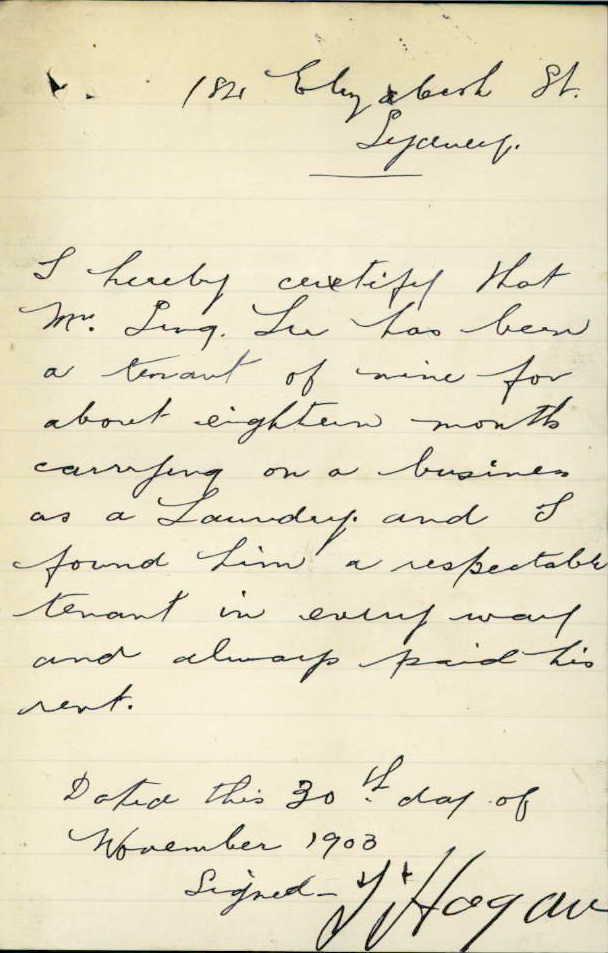 184 Elizabeth St.
Sydney.
I hereby certify that
Mr. Ling. Lee has been
a tenant of mine for
about eighteen month
carrying on a business
as a Laundry. and I
found him a respectable
tenant in every way
and always paid his
rent.
Dated this 30th day of
November 1903
Signed- Hogan